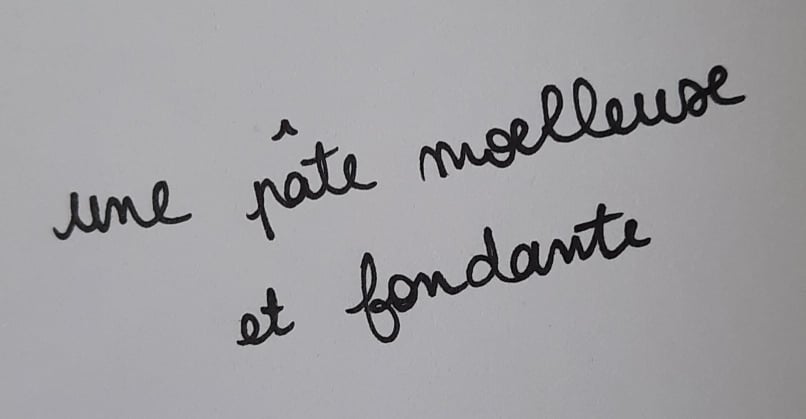 une pâte moelleuse
et fondante